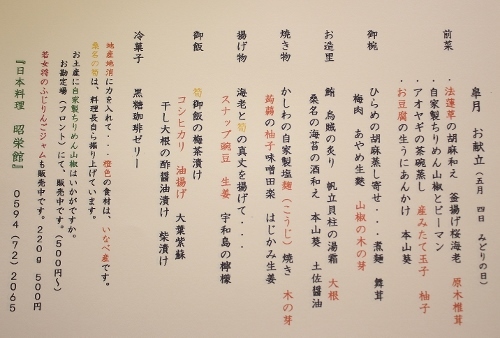 皐月 お献立（五月 四日 みどりの日）
前菜
・法蓮草の胡麻和え 釜揚げ桜海老 原木椎茸
・自家製ちりめん山椒とピーマン
・アオヤギの茶碗蒸し 産みたて玉子 柚子
・お豆腐の生うにあんかけ 本山葵
御椀
ひらめの胡麻蒸し寄せ・・・煮麺 舞茸
梅肉 あやめ生麩 山椒の木の芽
お造里
鮪 烏賊の炙り 帆立貝柱の湯霜 大根
桑名の海苔の酒和え 本山葵 土佐醤油
焼き物
かしわの自家製塩麹（こうじ）焼き 木の芽
蒟蒻の柚子味噌田楽 はじかみ生姜
揚げ物
海老と筍の真丈を揚げて・・・
スナップ豌豆 生姜 宇和島の檸檬
御飯
筍御飯の梅茶漬け
コシヒカリ 油揚げ 大葉紫蘇
干し大根の酢醤油漬け 柴漬け
冷菓子
黒糖珈琲ゼリー
地産地消に力を入れて・・・橙色の食材は、いなべ産です。
桑名の筍は、料理長自ら掘り上げています。
お土産に自家製ちりめん山椒はいかがですか。
お勘定場（フロント）にて、販売中です。（５００円～）
若女将のふじりんごジャムも販売中です。２２０ｇ ５００円
『日本料理 昭栄館』 ０５９４（７２）２０６５